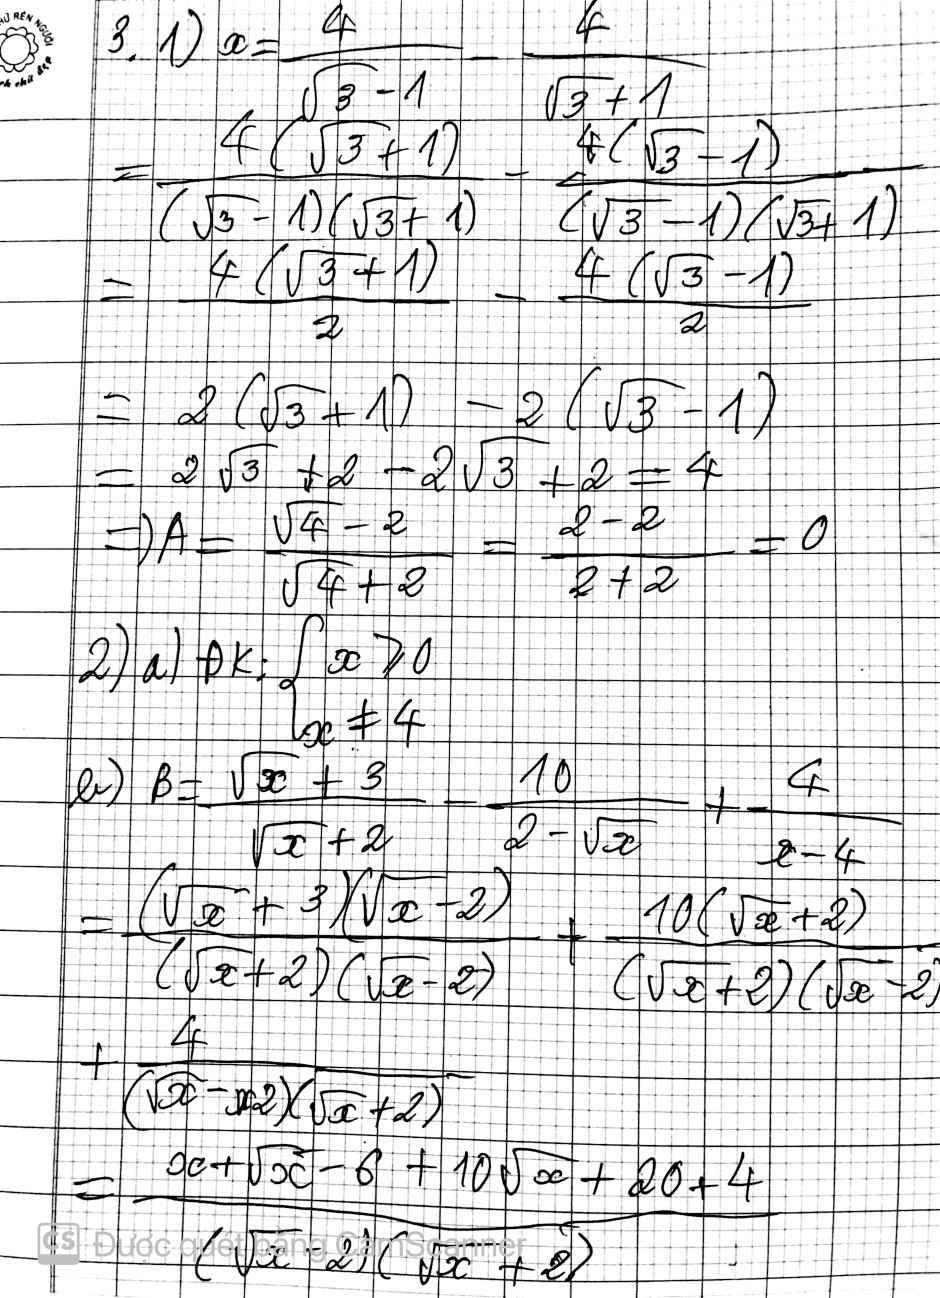 HỮ RÈN NGƯỜI
nh chữ đẹp
3. 1) x = 4/(√3 - 1) - 4/(√3 + 1)
= 4(√3 + 1)/((√3 - 1)(√3 + 1)) - 4(√3 - 1)/((√3 - 1)(√3 + 1))
= 4(√3 + 1)/2 - 4(√3 - 1)/2
= 2(√3 + 1) - 2(√3 - 1)
= 2√3 + 2 - 2√3 + 2 = 4
=) A = (√4 - 2)/(√4 + 2) = (2 - 2)/(2 + 2) = 0
2) a) ĐK: { x ⩾ 0
x ≠ 4
b) B = (√x + 3)/(√x + 2) - 10/(2 - √x) + 4/(x - 4)
= (√x + 3)(√x - 2)/((√x + 2)(√x - 2)) + 10(√x + 2)/((√x + 2)(√x - 2)
+ 4/((√x - 2)(√x + 2))
= (x + √x - 6 + 10√x + 20 + 4)/((√x - 2)(√x + 2))
CS Được quét bằng CamScanner